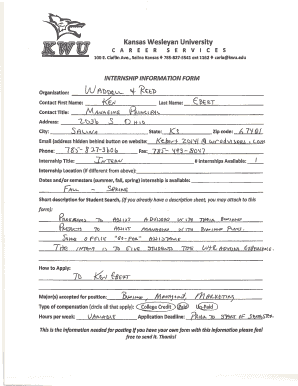 KWU
Kansas Wesleyan University
CAREER SERVICES
100 E. Claflin Ave., Salina Kansas
INTERNSHIP INFORMATION FORM
Organization: WADDELL & REED
Contact First Name: KEN Last Name: EBERT
Contact Title: MANAGING PRINCIPAL
Address: 2036 S OHIO
City: SALINA State: KS Zip code: 67401
Email (address hidden behind button on website)
Phone: 785-827-3606 Fax: 785-493-8047
Internship Title: INTERN # Internships Available: 1
Internship Location (if different from above):
Dates and/or semesters (summer, fall, spring) internship is available:
FALL - SPRING
Short description for Student Search. (If you already have a description sheet, you may attach to this
form):
TO ASSIST ADVISORS WITH THEIR BUSINESS
PROJECTS TO ASSIST MANAGER WITH BUSINESS PLANS.
SOME OFFICE
THE INTENT IS TO GIVE STUDENTS
How to Apply:
TO KEN EBERT
Major(s) accepted for position: MARKETING
Type of compensation (circle all that apply): College Credit Paid Un-Paid
Hours per week: VARIABLE Application Deadline: PRIOR TO START OF SEMESTER
This is the information needed for posting if you have your own form with this information please feel
free to send it. Thanks!